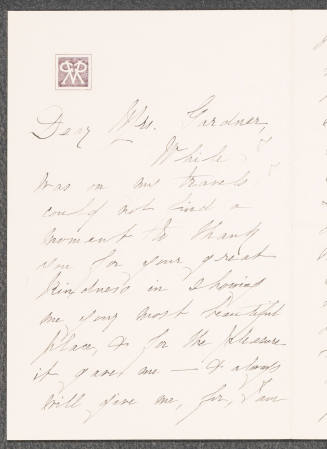 Dear Mrs. Gardner,
While I
was on my travels I
could not find a
moment to thank
you for your great
kindness in showing
me your most beautiful
place, & for the pleasure
it gave me — & always
will give me, for, I am